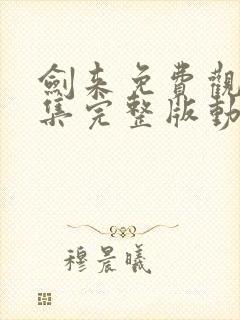 劍来免費觀
集完整版動
穆晨曦